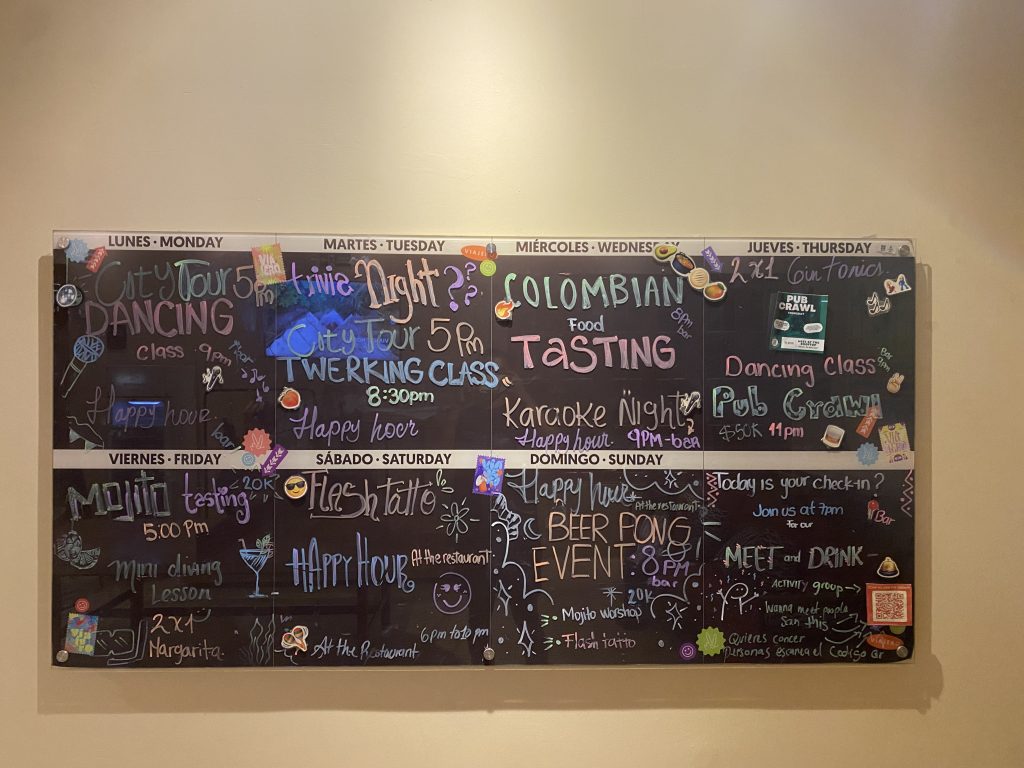 LUNES · MONDAY
City Tour 5pm
DANCING
class 9pm
Happy hour
bar
MARTES · TUESDAY
trivia Night??
City Tour 5Pm
TWERKING CLASS
8:30pm
Happy hour
MIÉRCOLES · WEDNESDAY
COLOMBIAN
8pm
bar
Food
TASTING
Karaoke Night
Happy hour 9PM-bar
JUEVES · THURSDAY
2x1 Gin tonics
PUB
CRAWL
Dancing Class
Bar
9pm
Pub Crawl
$50K 11pm
VIERNES · FRIDAY
Mojito tasting 20K
5:00 Pm
Mini diving
Lesson
2x1
Margarita
SÁBADO · SATURDAY
Flash tatto
HAPPY HOUR At the restaurant
6pm to 10 pm
At the Restaurant
DOMINGO · SUNDAY
Happy hour
At the restaurant
BEER PONG
EVENT 8PM
bar
20K
Mojito worshop
Flash tatto
Today is your check-in?
Join us at 7pm
Bar
for our
MEET and DRINK
ACTIVITY group
Wanna meet people
San this
Quieres concer
Personas escanea el Codigo Qr